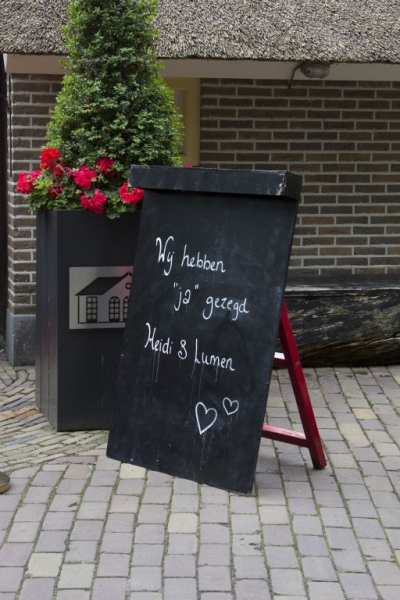 Wij hebben
"ja" gezegd
Heidi & Lumen